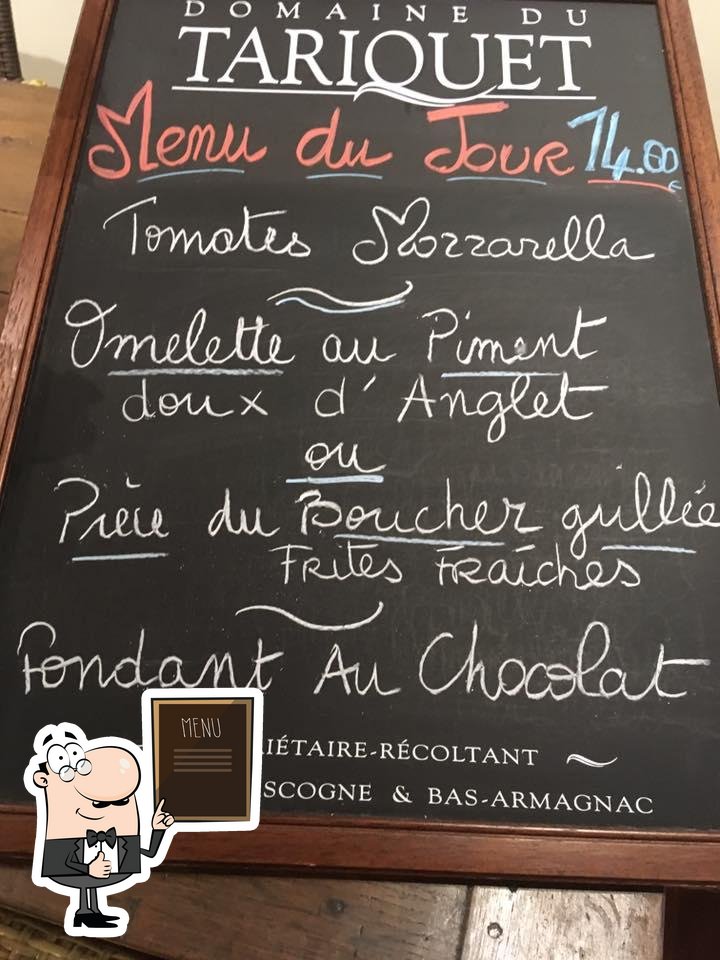 DOMAINE DU
TARIQUET
Menu du Jour 14.00
Tomates Mozzarella
Omelette au Piment
doux d'Anglet
ou
Pièce du Boucher grillée
Frites Fraîches
Fondant Au Chocolat
MENU
RIÉTAIRE-RÉCOLTANT
SCOGNE & BAS-ARMAGNAC